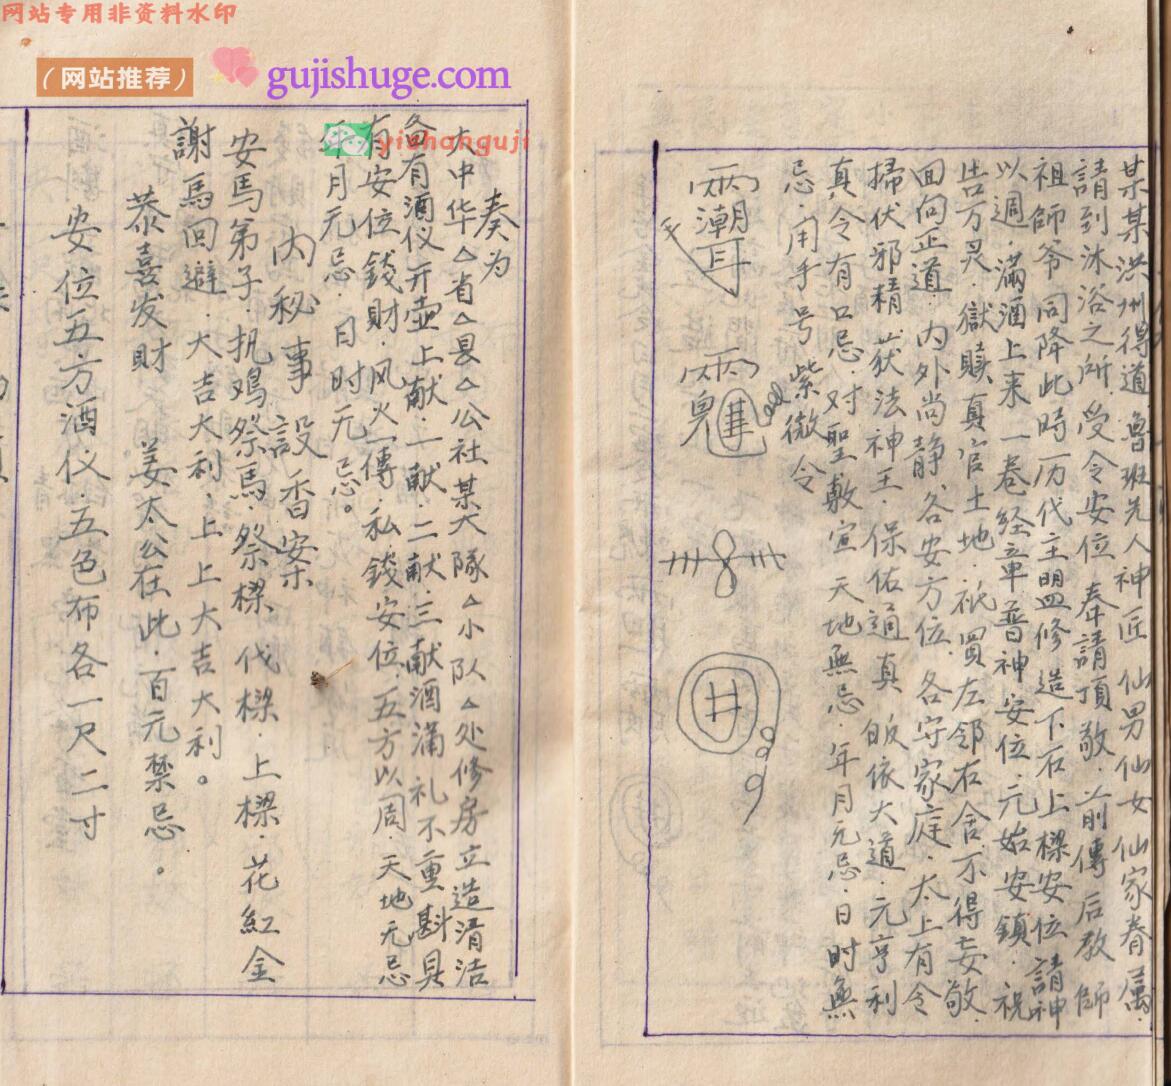 网站专用非资料水印
（网站推荐）
gujishuge.com
yishanguji
某某洪州得道魯班先人神匠仙男仙女仙家眷属.
請到沐浴之所.受令安位.奉請頂敬.前傳后教師
祖師爷同降此時历代主盟修造下石上樑安位請神
以週.滿酒上来一卷经章普神安位.元始安鎮.祝
告万灵.獄瀆真官土地.祇買左邻右舍.不得妄敬.
回向正道.内外尚静.各安方位.各守家庭.太上有令
掃伏邪精.获法神王.保佑通真皈依大道.元亨利
真.令有口忌.对聖敕宣天地無忌.年月元忌.日时無
忌.用手号紫微令
井
奏为
大中华△省△县△公社某大隊△小队△处修房立造清洁
备有酒仪开壶上献.一献.二献.三献酒滿礼不重斟具
有安位錢財.风火一傳.私錢安位.五方以周.天地元忌
年月元忌.日时元忌。
内秘事設香案
安馬弟子.执鸡祭馬.祭樑伐樑.上樑.花紅金
謝馬回避.大吉大利.上上大吉大利。
恭喜发財 姜太公在此.百元禁忌。
安位五方酒仪.五色布各一尺二寸